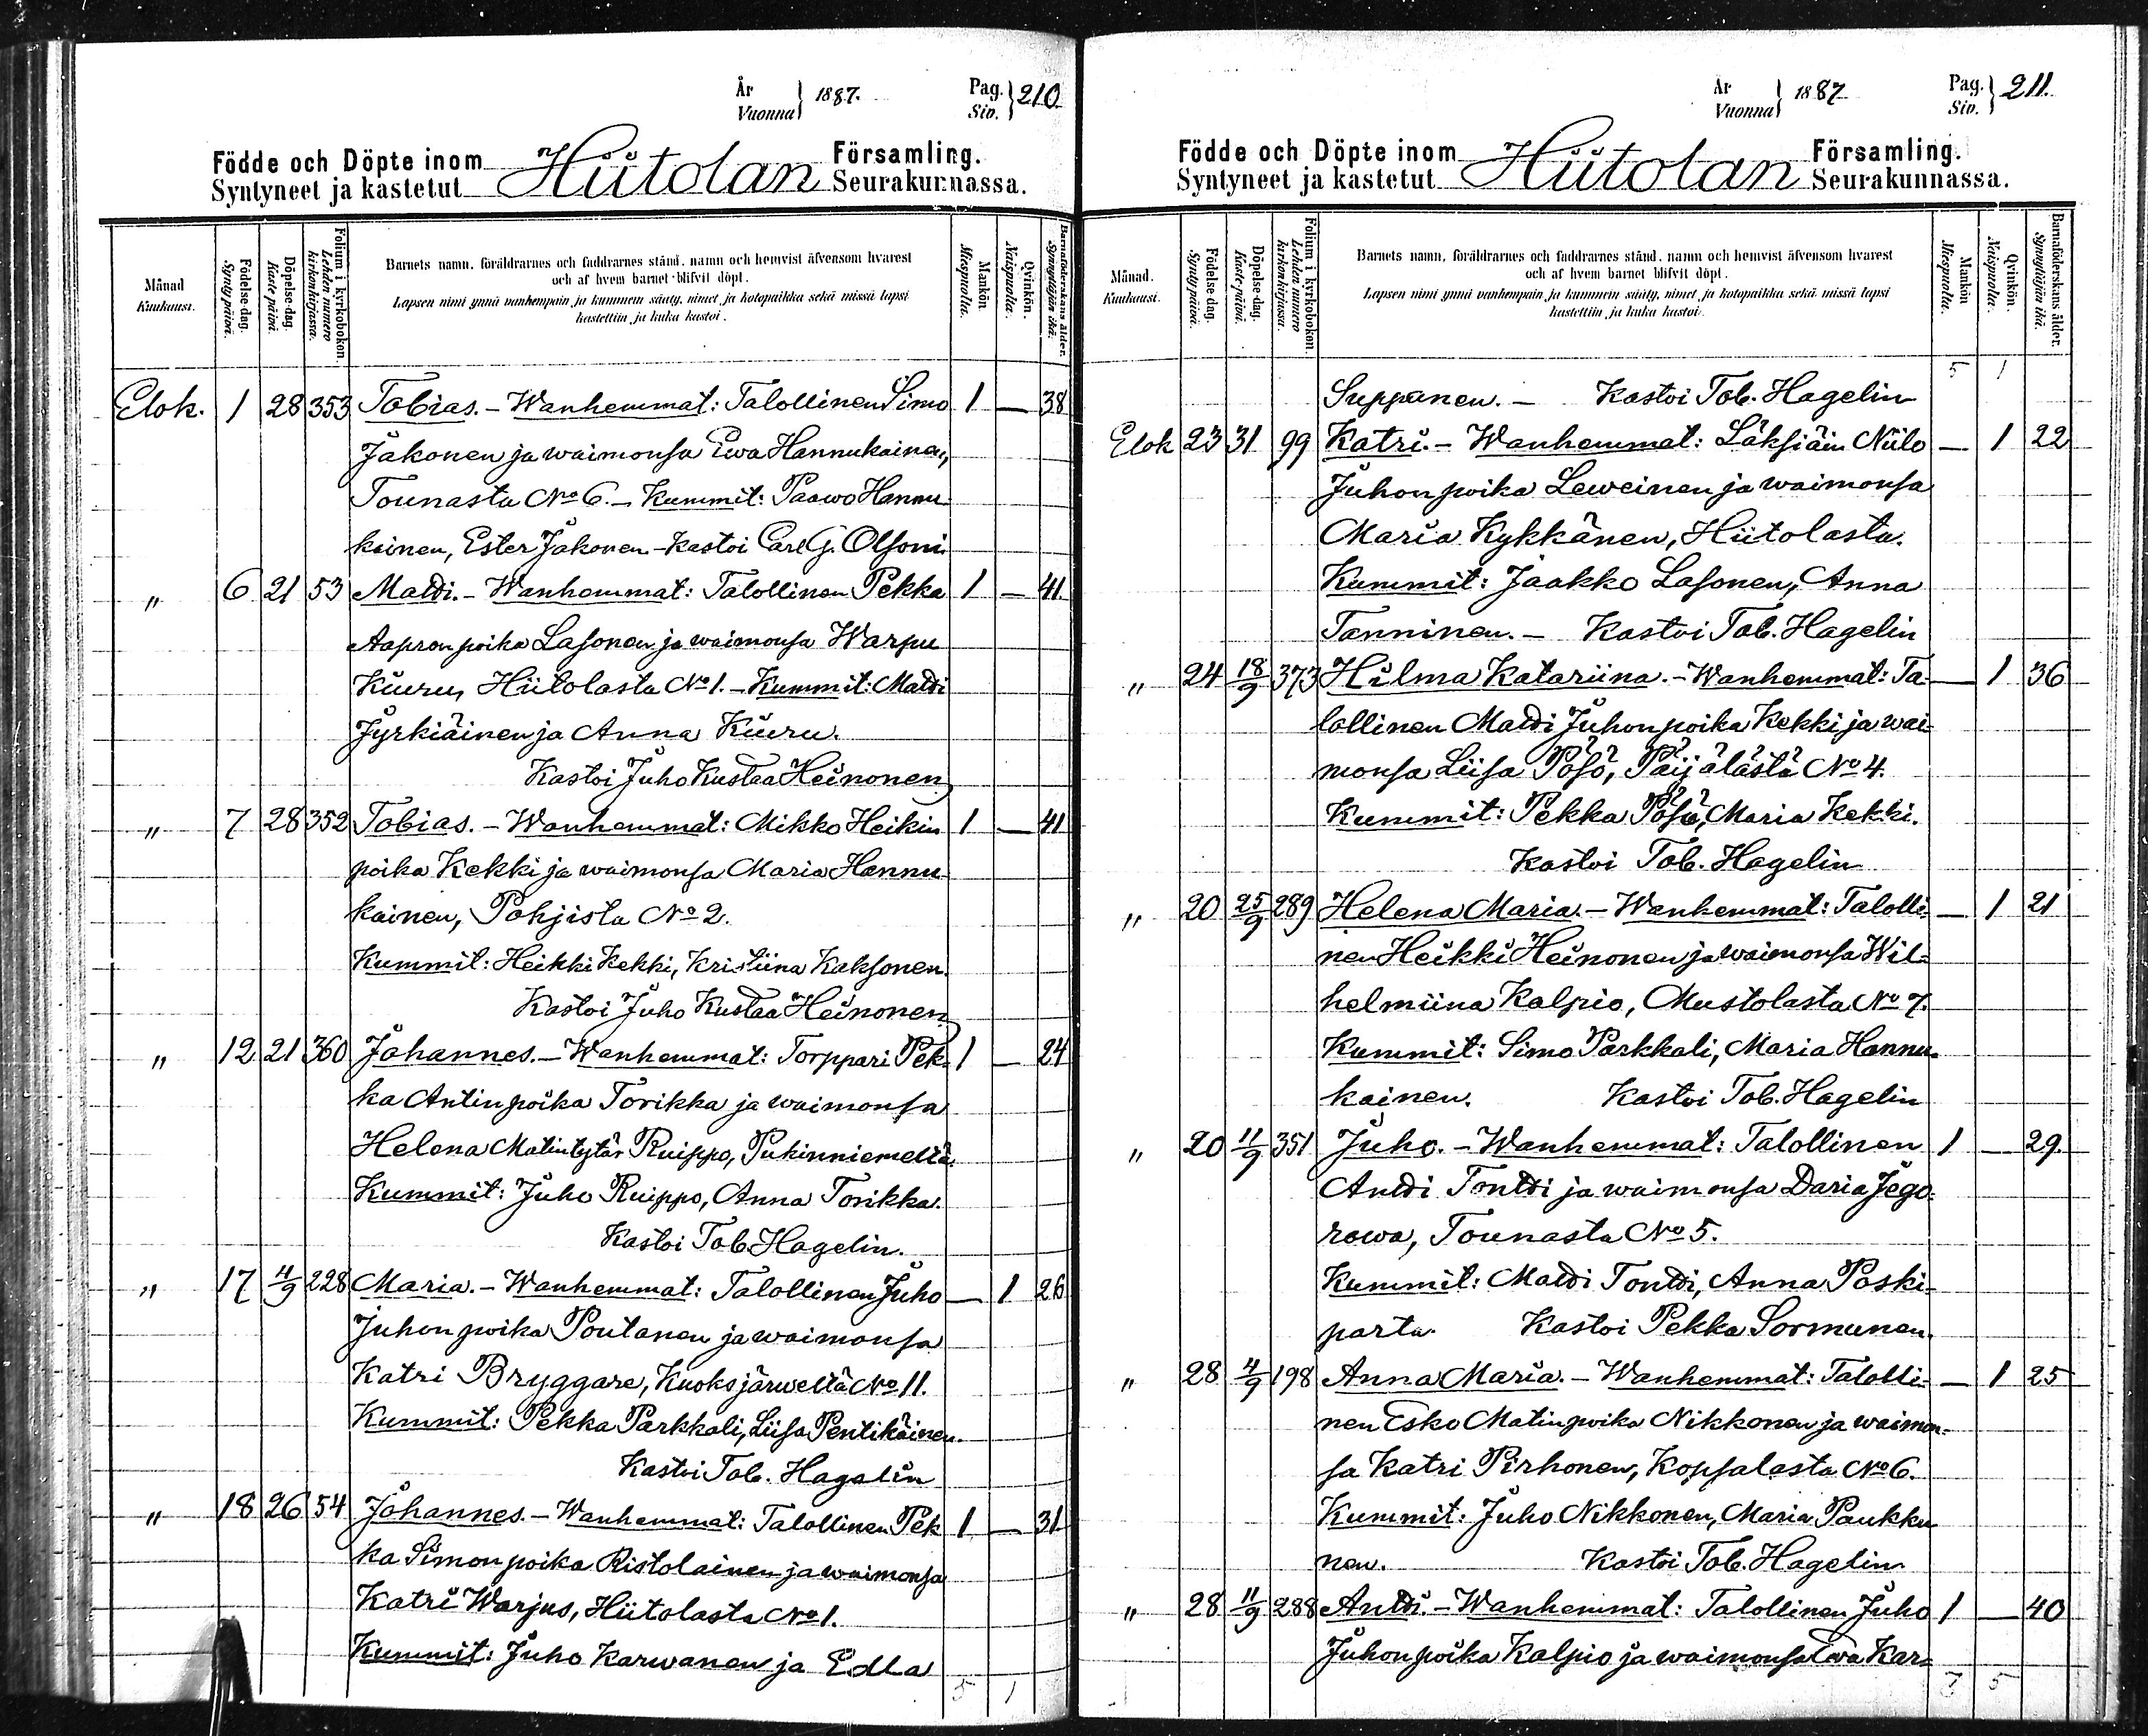 År
Vuonna } 1887.
Pag.
Siv. } 210
Födde och Döpte inom
Syntyneet ja kastetut Hiitolan Församling.
Seurakunnassa.
Månad
Kuukausi.
Födelse-dag.
Synty-päivä.
Döpelse-dag.
Kaste-päivä.
Folium i kyrkobokon.
Lehden numero kirkonkirjassa.
Barnets namn, föräldrarnes och faddrarnes stånd, namn och hemvist äfvensom hvarest
och af hvem barnet blifvit döpt.
Lapsen nimi ynnä vanhempain ja kummein sääty, nimet ja kotopaikka sekä missä lapsi
kastettiin ja kuka kastoi.
Mankön
Miespuolia.
Qvinkön.
Naispuolia.
Barnaföderskans ålder.
Synnyttäjän ikä.
Elok. 1 28 353 Tobias. - Wanhemmat: Talollinen Simo 1 — 38
Jakonen ja waimonsa Ewa Hannukainen,
Tounasta No 6. - Kummit: Paawo Hannu-
kainen, Ester Jakonen - Kastoi Carl G. Olsoni
" 6 21 53 Matti. - Wanhemmat: Talollinen Pekka 1 — 41
Aapronpoika Lasonen ja waimonsa Warpu
Kiuru, Hiitolasta No 1. - Kummit: Matti
Jyrkiäinen ja Anna Kiuru.
Kastoi Juho Kustaa Heinonen
" 7 28 352 Tobias. - Wanhemmat: Mikko Heikin 1 — 41
poika Kekki ja waimonsa Maria Hannu-
kainen, Pohjista No 2.
Kummit: Heikki Kekki, Kristiina Kaksonen.
Kastoi Juho Kustaa Heinonen
" 12 21 360 Johannes. - Wanhemmat: Torppari Pek- 1 — 24
ka Antinpoika Torikka ja waimonsa
Helena Matintytär Ruippo, Pukinniemeltä.
Kummit: Juho Ruippo, Anna Torikka.
Kastoi Tob. Hagelin.
" 17 4/9 228 Maria. - Wanhemmat: Talollinen Juho — 1 26
Juhonpoika Poutanen ja waimonsa
Katri Bryggare, Kuoksjärweltä No 11.
Kummit: Pekka Parkkali, Liisa Pentikäinen.
Kastoi Tob. Hagelin
" 18 26 54 Johannes. - Wanhemmat: Talollinen Pek 1 — 31
ka Simonpoika Ristolainen ja waimonsa
Katri Warjus, Hiitolasta No 1.
Kummit: Juho Karwanen ja Edla
5 1
År
Vuonna } 1887
Pag.
Siv. } 211.
Födde och Döpte inom
Syntyneet ja kastetut Hiitolan Församling.
Seurakunnassa.
Månad.
Kuukausi.
Födelse dag.
Synty päivä.
Döpelse-dag.
Kaste-päivä.
Folium i kyrkobokon.
Lehden numero kirkonkirjassa.
Barnets namn, föräldrarnes och faddrarnes stånd, namn och hemvist äfvensom hvarest
och af hvem barnet blifvit döpt.
Lapsen nimi ynnä vanhempain ja kummein sääty, nimet ja kotopaikka sekä missä lapsi
kastettiin ja kuka kastoi.
Mankön
Miespuolia.
Qvinkön.
Naispuolia.
Barnaföderskans ålder.
Synnyttäjän ikä.
5 1
Suppanen. - Kastoi Tob. Hagelin
Elok 23 31 99 Katri. - Wanhemmat: Läksiäin Niilo — 1 22
Juhonpoika Leweinen ja waimonsa
Maria Kykkänen, Hiitolasta.
Kummit: Jaakko Lasonen, Anna
Tanninen. - Kastoi Tob. Hagelin
" 24 18/9 373 Hilma Katariina. - Wanhemmat: Ta- — 1 36
lollinen Matti Juhonpoika Kekki ja wai-
monsa Liisa Pösö, Päijälästä No 4.
Kummit: Pekka Pösö, Maria Kekki.
Kastoi Tob. Hagelin
" 20 25/9 289 Helena Maria. - Wanhemmat: Talolli- — 1 21
nen Heikki Heinonen ja waimonsa Wil-
helmiina Kalpio, Mustolasta No 7.
Kummit: Simo Parkkali, Maria Hannu-
kainen. Kastoi Tob. Hagelin
" 20 11/9 351 Juho. - Wanhemmat: Talollinen 1 — 29.
Antti Tontti ja waimonsa Daria Jego-
rowa, Tounasta No 5.
Kummit: Matti Tontti, Anna Poski-
parta. Kastoi Pekka Sormunen.
" 28 4/9 198 Anna Maria. - Wanhemmat: Talolli- — 1 25
nen Esko Matinpoika Nikkonen ja waimon-
sa Katri Pirhonen, Kopsalasta No 6.
Kummit: Juho Nikkonen, Maria Paukku
nen. Kastoi Tob. Hagelin
" 28 11/9 288 Antti. - Wanhemmat: Talollinen Juho 1 — 40
Juhonpoika Kalpio ja waimonsa Ewa Kar-
7 5